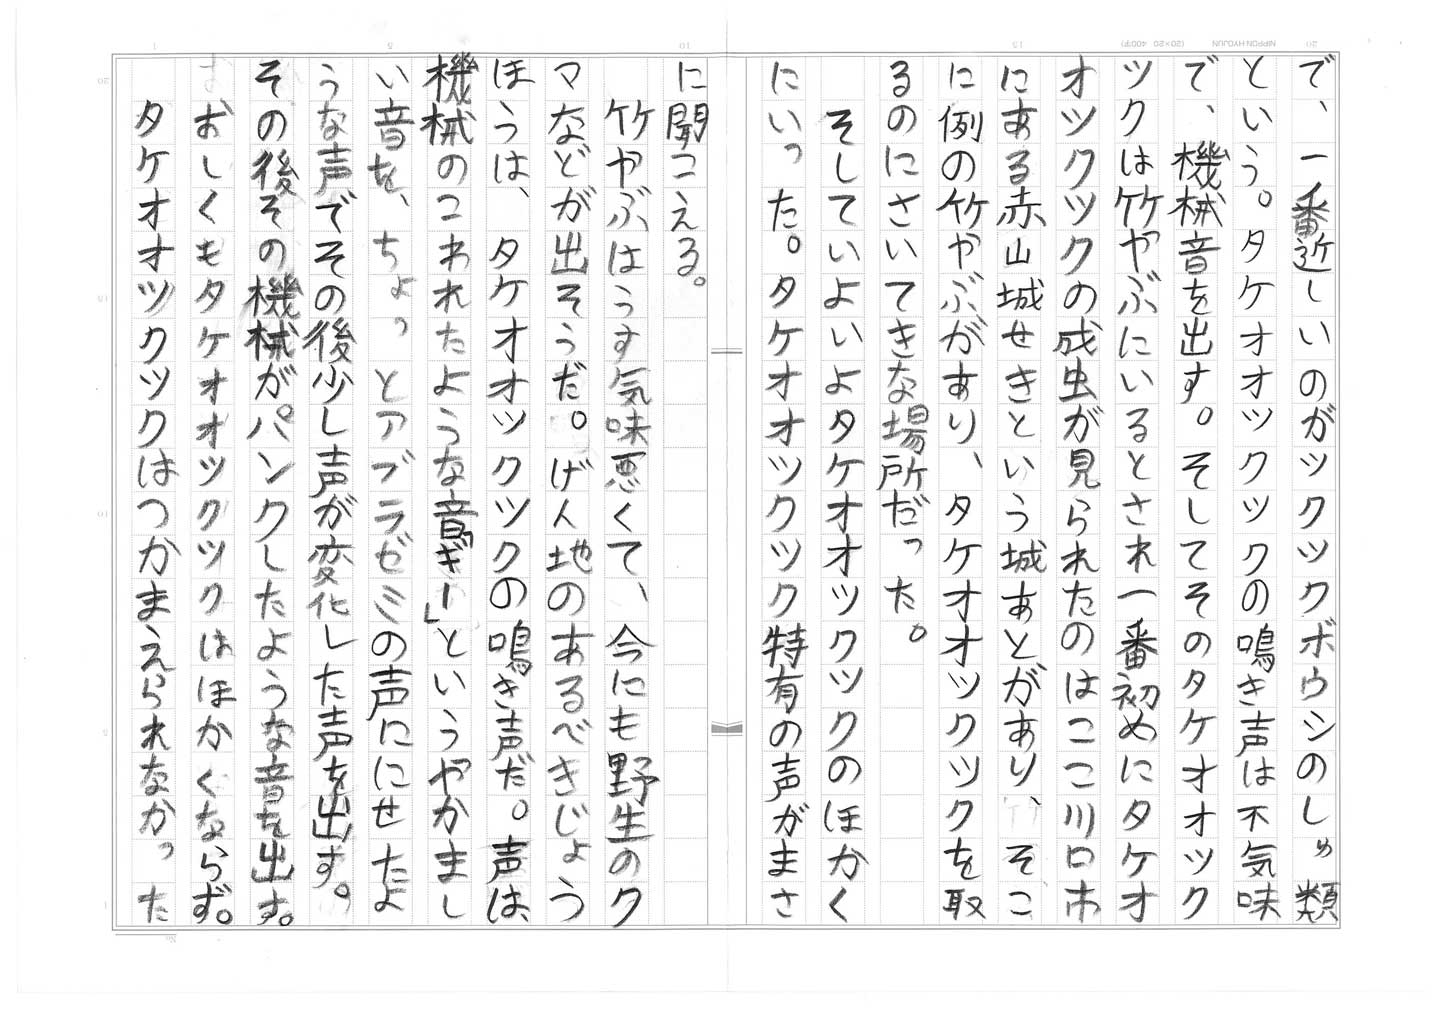 で、一番近しいのがツクツクボウシのしゅ類
という。タケオオツクツクの鳴き声は不気味
で、機械音を出す。そしてそのタケオオツク
ツクは竹やぶにいるとされ一番初めにタケオ
オツクツクの成虫が見られたのはここ川口市
にある赤山城せきという城あとがあり、そこ
に例の竹やぶがあり、タケオオツクツクを取
るのにさいてきな場所だった。
そしていよいよタケオオツクツクのほかく
にいった。タケオオツクツク特有の声がまさ
に聞こえる。
竹やぶはうす気味悪くて、今にも野生のク
マなどが出そうだ。げん地のあるべきじょう
ほうは、タケオオツクツクの鳴き声だ。声は、
機械のこわれたような音「ギー」というやかまし
い音を、ちょっとアブラゼミの声ににせたよ
うな声でその後少し声が変化した声を出す。
その後その機械が。パンクしたような音を出す。
おしくもタケオオツクツクはほかくならず。
タケオオツクツクはつかまえられなかった
NIPPON HYOJUN (20×20 400字)
No
1
5
10
15
20